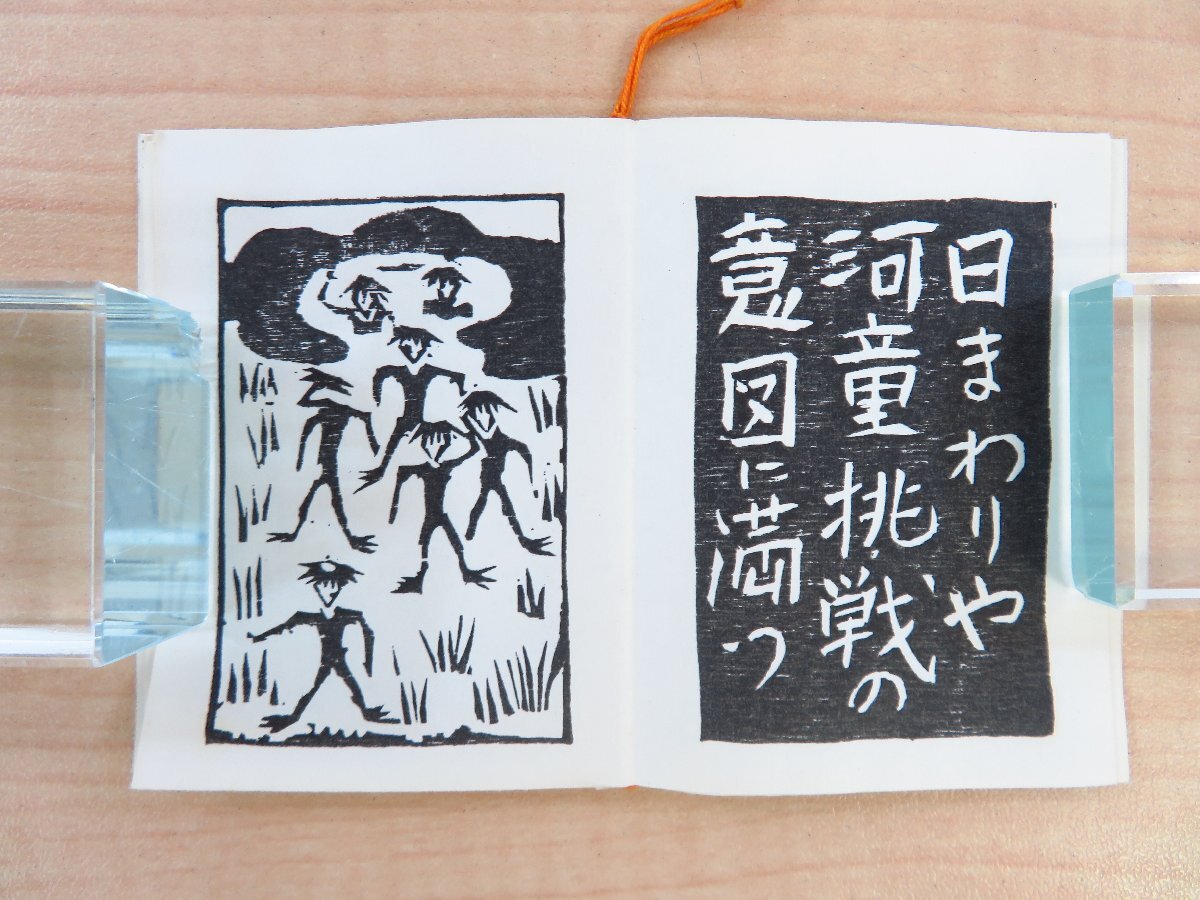 日まわりや
河童挑戦の
意図に満つ